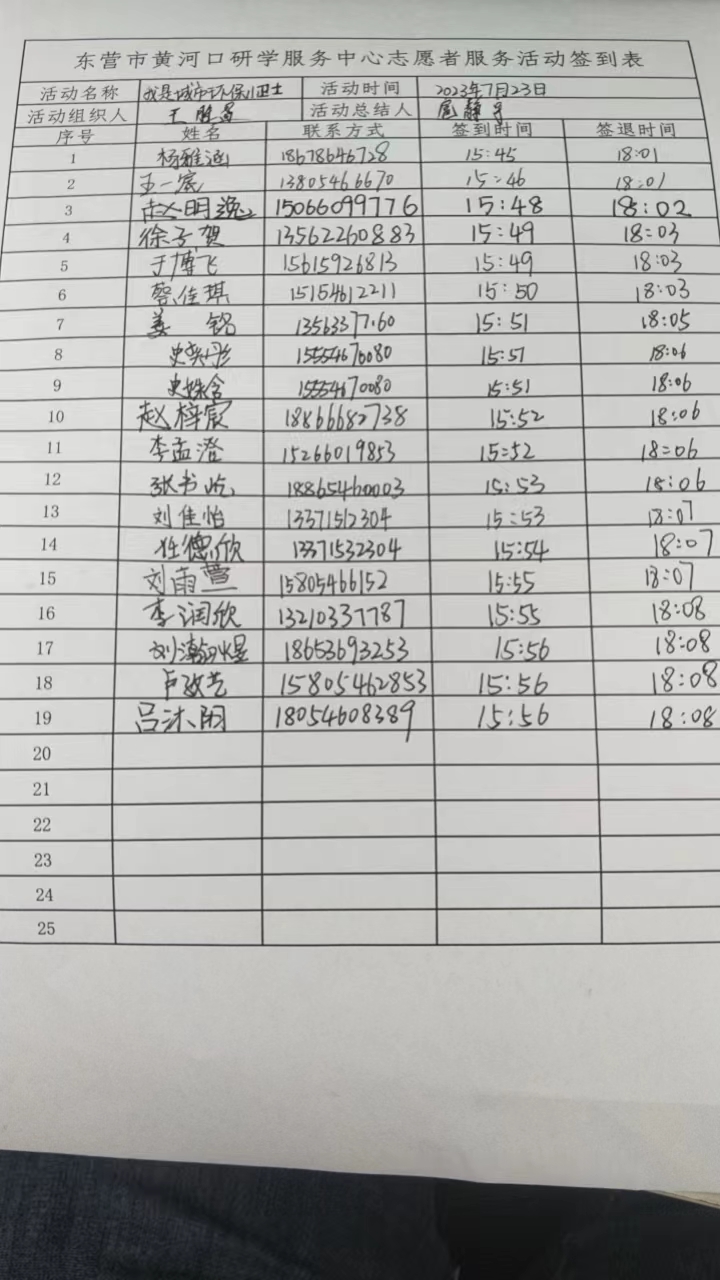 东营市黄河口研学服务中心志愿者服务活动签到表
活动名称 我是城市环保小卫士 活动时间 2023年7月23日
活动组织人 王 活动总结人
序号 姓名 联系方式 签到时间 签退时间
1 杨雅涵 18678646728 15:45 18:01
2 王一宸 13805466670 15:46 18:01
3 赵明逸 15066099776 15:48 18:02
4 徐子贺 13562260883 15:49 18:03
5 于博飞 15615926813 15:49 18:03
6 蔡佳琪 15154612211 15:50 18:03
7 姜铭 15:51 18:05
8 15554670080 15:51 18:06
9 史姝含 15554670080 15:51 18:06
10 赵梓宸 18866682738 15:52 18:06
11 李孟澄 15266019853 15:52 18:06
12 张书屹 18865460003 15:53 18:06
13 刘佳怡 13371512304 15:53 18:07
14 任德欣 13371532304 15:54 18:07
15 刘雨萱 15805466152 15:55 18:07
16 李润欣 13210337787 15:55 18:08
17 18653693253 15:56 18:08
18 15805462853 15:56 18:08
19 吕沐阳 18054608389 15:56 18:08
20
21
22
23
24
25